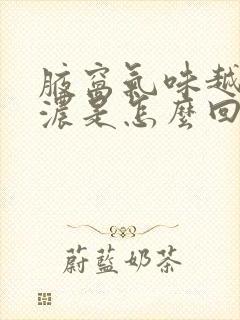 腋窩氣味越
濃是怎麼回
蔚藍奶茶